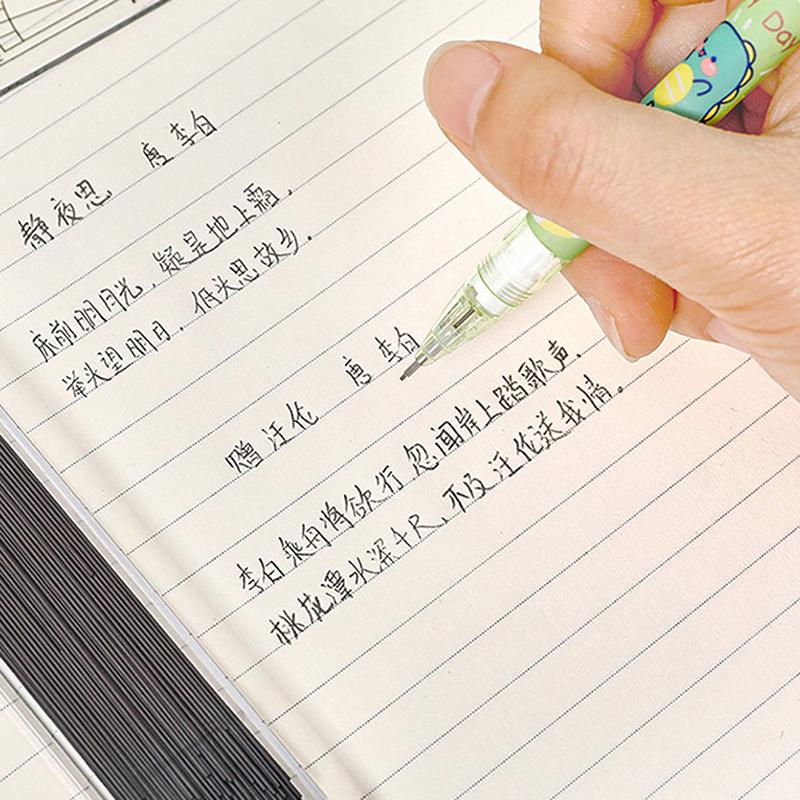 静夜思 唐 李白
床前明月光，疑是地上霜.
举头望明月，低头思故乡.
赠汪伦 唐 李白
李白乘舟将欲行 忽闻岸上踏歌声.
桃花潭水深千尺，不及汪伦送我情。
Day